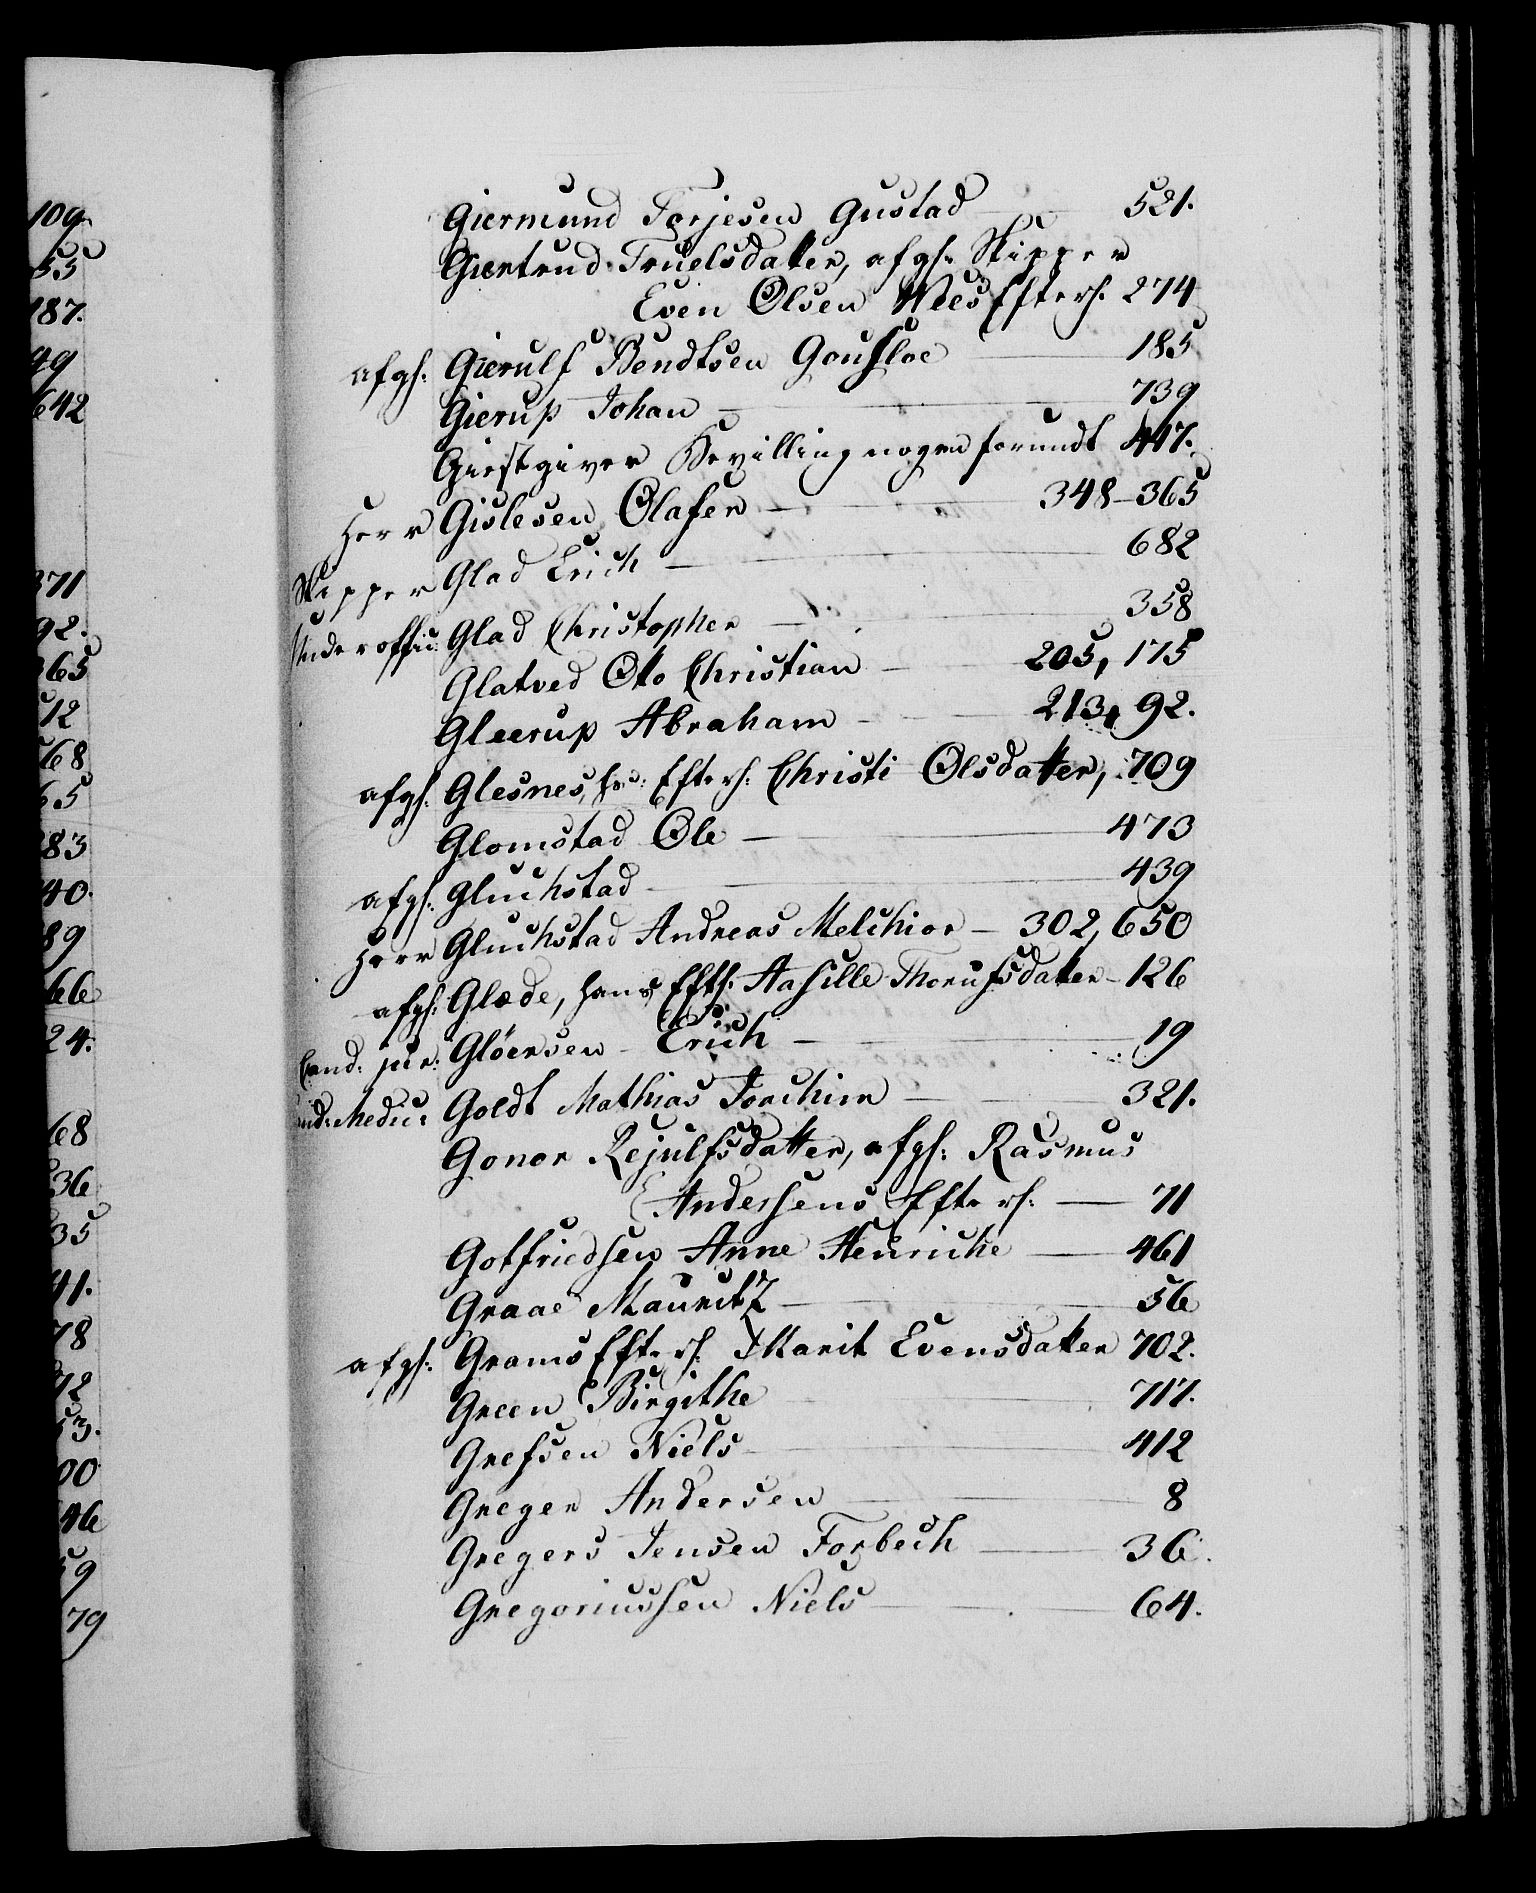 109
55
187.
49
642
371
92.
365
512
568
65
83
40.
89
66
24.
68
36
35
41.
78
72
53.
00
46
59
79
Giermund Torjesen Gustad 521.
Giertrud Truelsdatter, afgl: Skipper
Even Olsen Wees Efterl: 274
afgl: Gierulf Bendtsen Gousloe 185
Gierup Johan 739
Giestgiver Bevilling nogen forundt 417.
Herr Gislesen Olafer 348–365
Skipper Glad Erich 682
Underoffic: Glad Christopher 358
Glatved Otto Christian 205, 175
Gleerup Abraham 213, 92.
afgl: Glesnes, Efterl: Christi Olsdatter, 709
Glomstad Ole 473
afgl: Gluchstad 439
Herr Gluchstad Andreas Melchior – 302, 650
afgl: Glæde, Hans Eftl: Aasille Thorufsdatter – 126
Cand: jur: Gløersen Erich 19
Cand: Medic: Goldt Mathias Joachim 321.
Gonor Rejulfsdatter, afgl: Rasmus
Andersens Efterl: 71
Gotfriedsen Anne Henriche 461
Graae Mauritz 56
afgl: Grams Efterl: Marit Evensdatter 702.
Green Birgithe 717.
Grefsen Niels 412
Greger Andersen 8
Gregers Jensen Forbech 36.
Gregoriussen Niels 64.